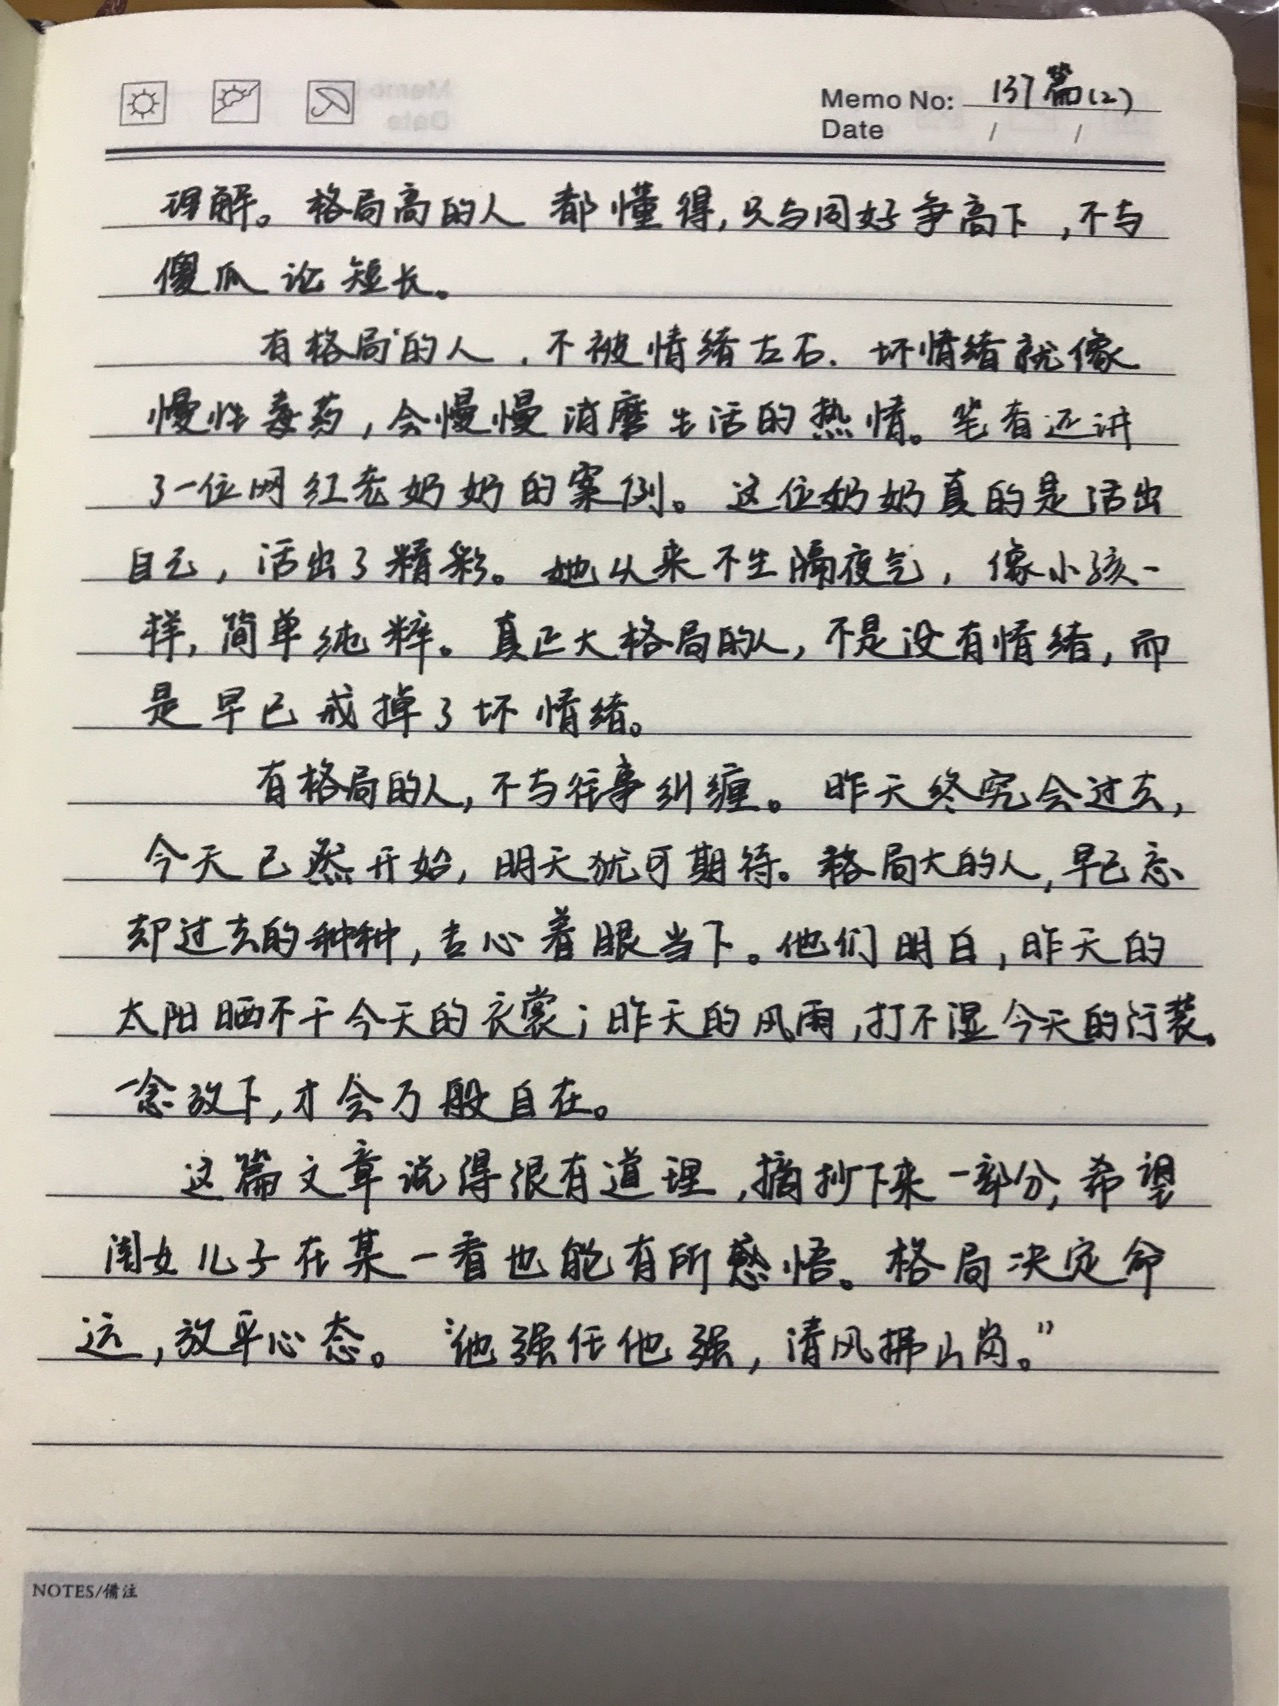 Memo No: 137篇(2)
Date / /
理解。格局高的人都懂得,只与同好争高下,不与
傻瓜论短长。
有格局的人,不被情绪左右.坏情绪就像
慢性毒药,会慢慢消磨生活的热情。笔者还讲
了一位网红老奶奶的案例。这位奶奶真的是活出
自己,活出了精彩。她从来不生隔夜气,像小孩一
样,简单纯粹。真正大格局的人,不是没有情绪,而
是早已戒掉了坏情绪。
有格局的人,不与往事纠缠。昨天终究会过去,
今天已然开始,明天犹可期待。格局大的人,早已忘
却过去的种种,专心着眼当下。他们明白,昨天的
太阳晒不干今天的衣裳;昨天的风雨,打不湿今天的行装。
一念放下,才会万般自在。
这篇文章说得很有道理,摘抄下来一部分,希望
闺女儿子在某一看也能有所感悟。格局决定命
运,放平心态。“他强任他强,清风拂山岗。”
NOTES/備注